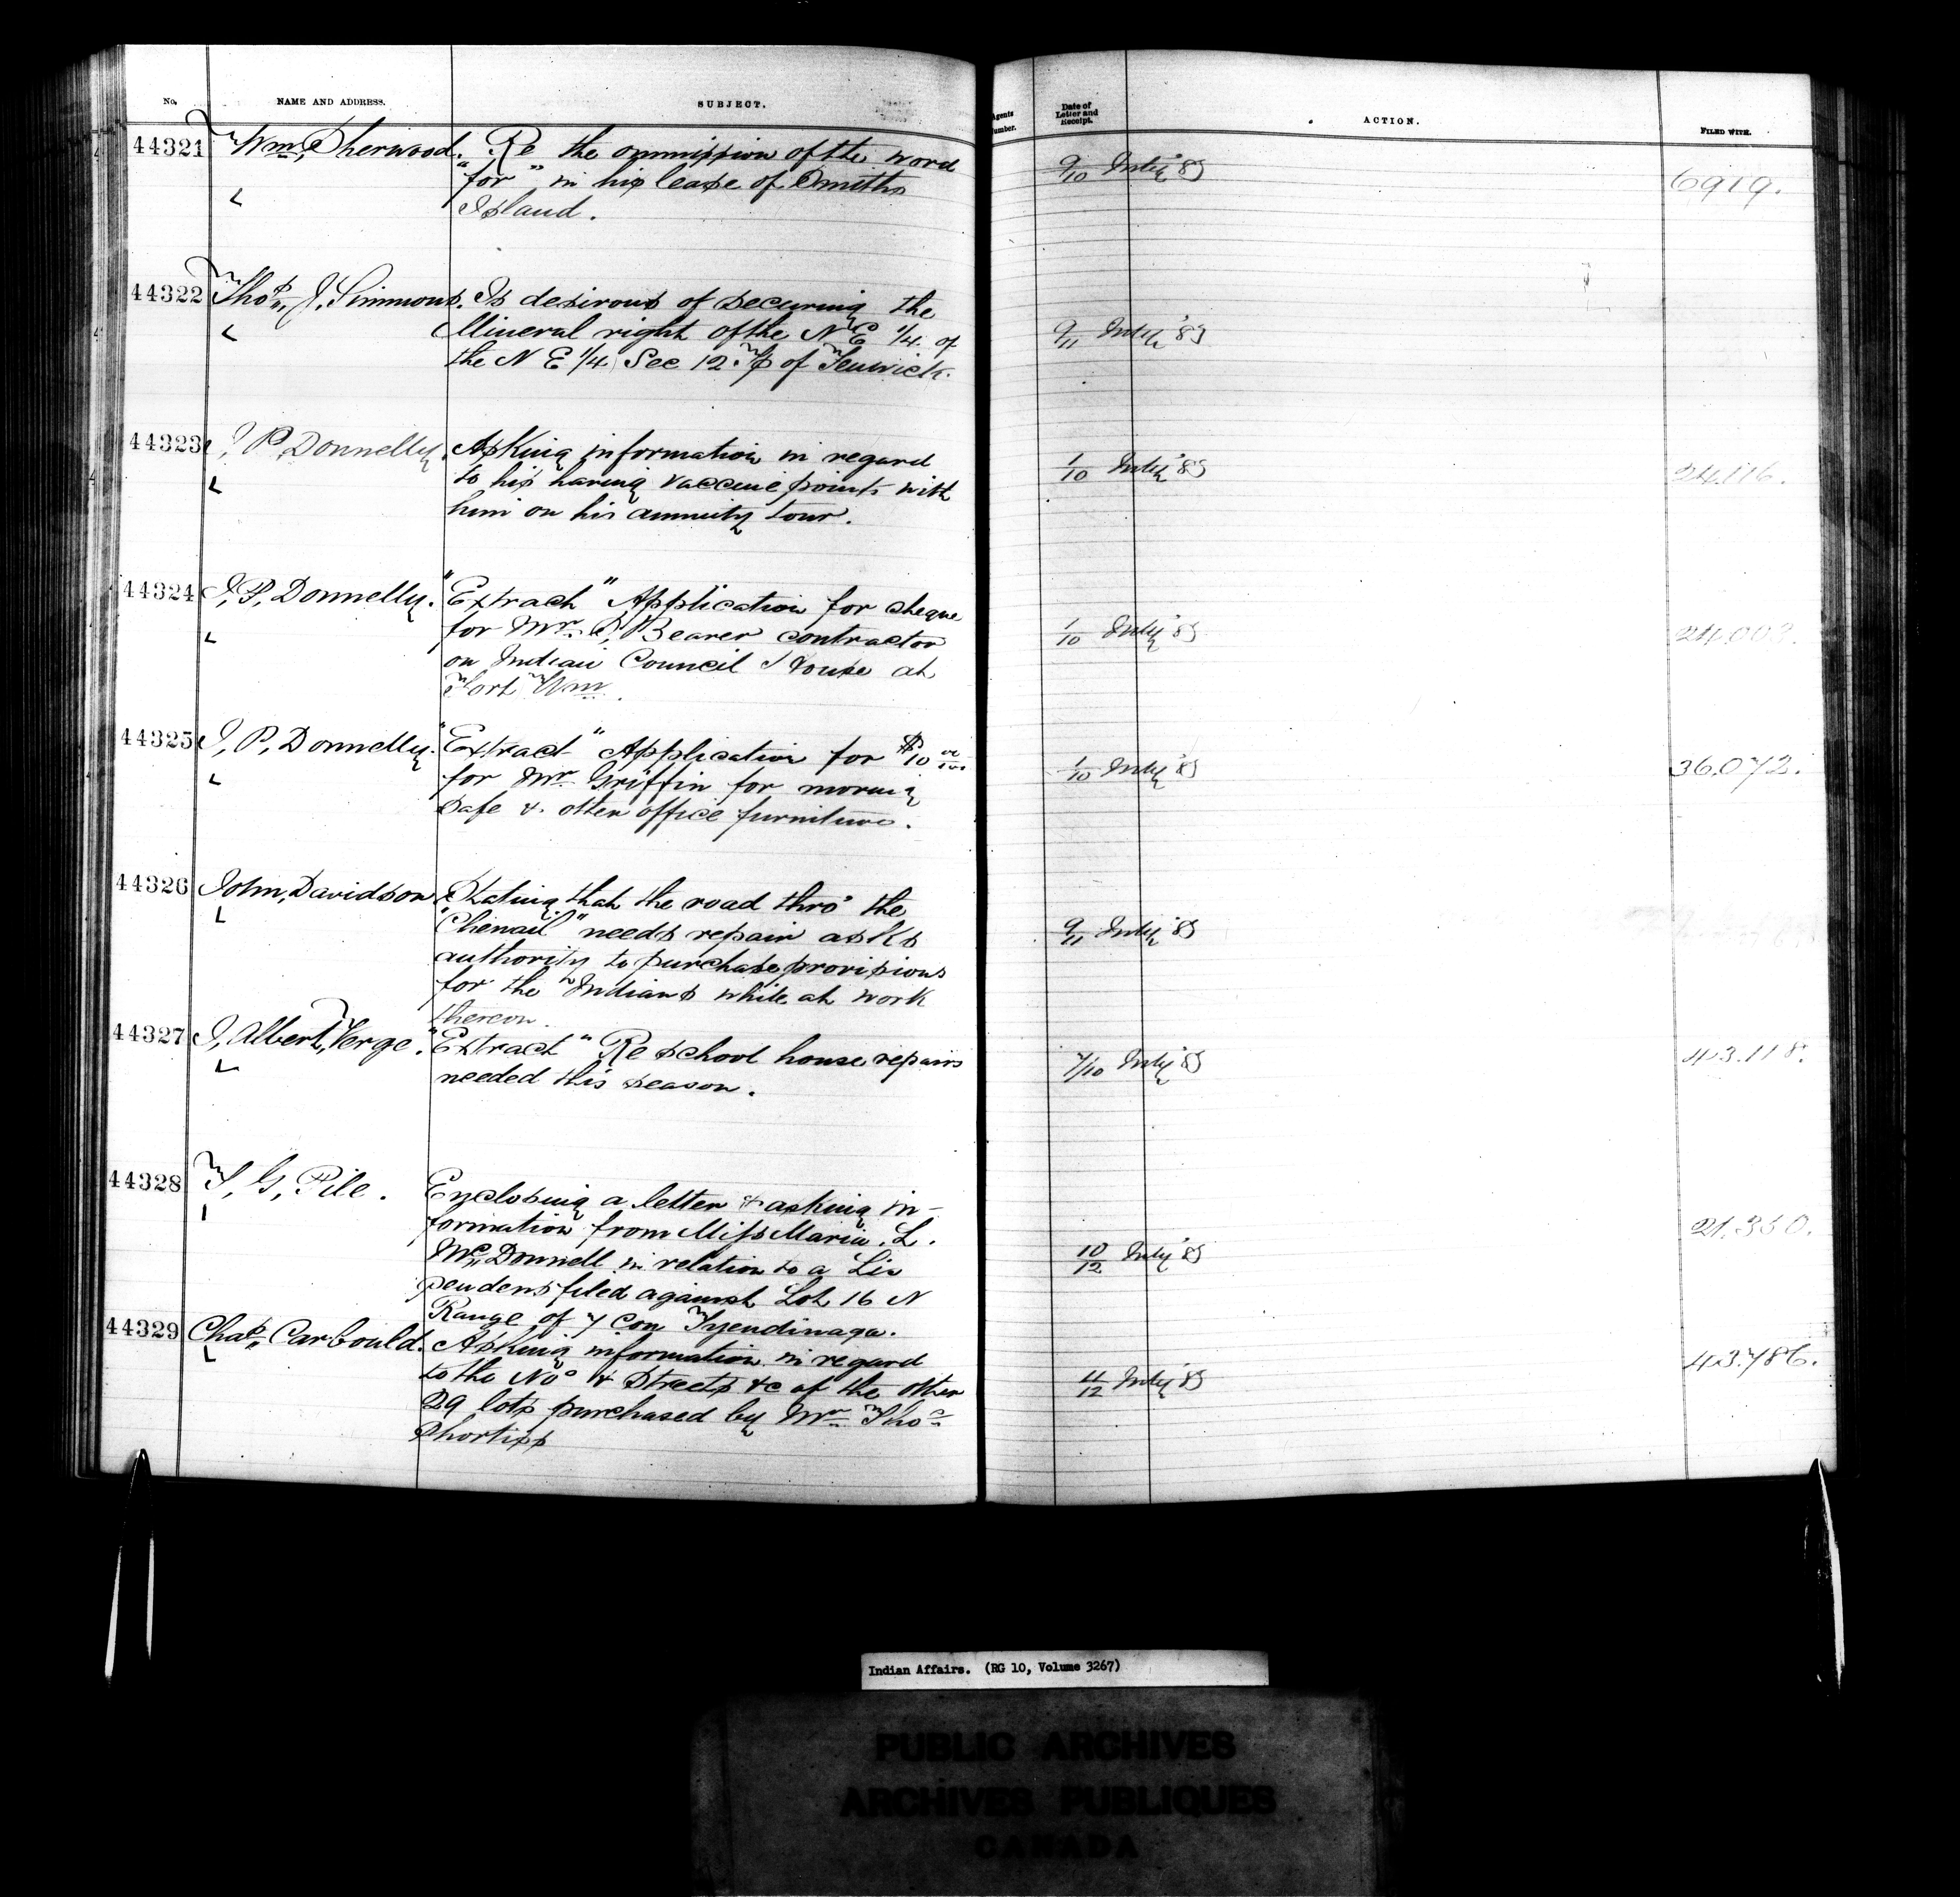 No. NAME AND ADDRESS. SUBJECT. Agents Number. Date of Letter and Receipt. ACTION. FILED WITH.
44321 Wm. Sherwood. Re the ommission of the word
"for" in his lease of Smiths
Island.
9/10 July '85 6919.
44322 Thos. J. Simmons. Is desirous of securing the
Mineral right of the N E 1/4 of
the N E 1/4 Sec 12. Tp of Fenwick.
9/11 July '85
44323 J. P. Donnelly. Asking information in regard
to his having vaccine points with
him on his annuity tour.
1/10 July '85 24.116.
44324 J. P. Donnelly. "Extract" Application for cheque
for Mr. P. Bearer contractor
on Indian Council House at
Fort Wm.
1/10 July '85
44325 J. P. Donnelly. "Extract" Application for $10 00/100
for Mr. Griffin for moving
safe & other office furniture.
1/10 July '85 36.072.
44326 John Davidson. Stating that the road thro' the
"Chenail" needs repair asks
authority to purchase provisions
for the Indians while at work
thereon.
9/11 July '85
44327 J. Albert Verge. "Extract" Re school house repairs
needed this season.
7/10 July '85 43.118.
44328 T. G. Pile. Enclosing a letter & asking in-
formation from Miss Maria. L.
McDonnell in relation to a Lis
pendens filed against Lot 16 N
Range of 7 Con Tyendinaga.
10/12 July '85 21.350.
44329 Chas. Carbould. Asking information in regard
to the Nos & Streets &c of the other
29 lots purchased by Mr. Thos.
Shortiss
11/12 July '85 43.786.
Indian Affairs. (RG 10, Volume 3267)
PUBLIC ARCHIVES
ARCHIVES PUBLIQUES
CANADA